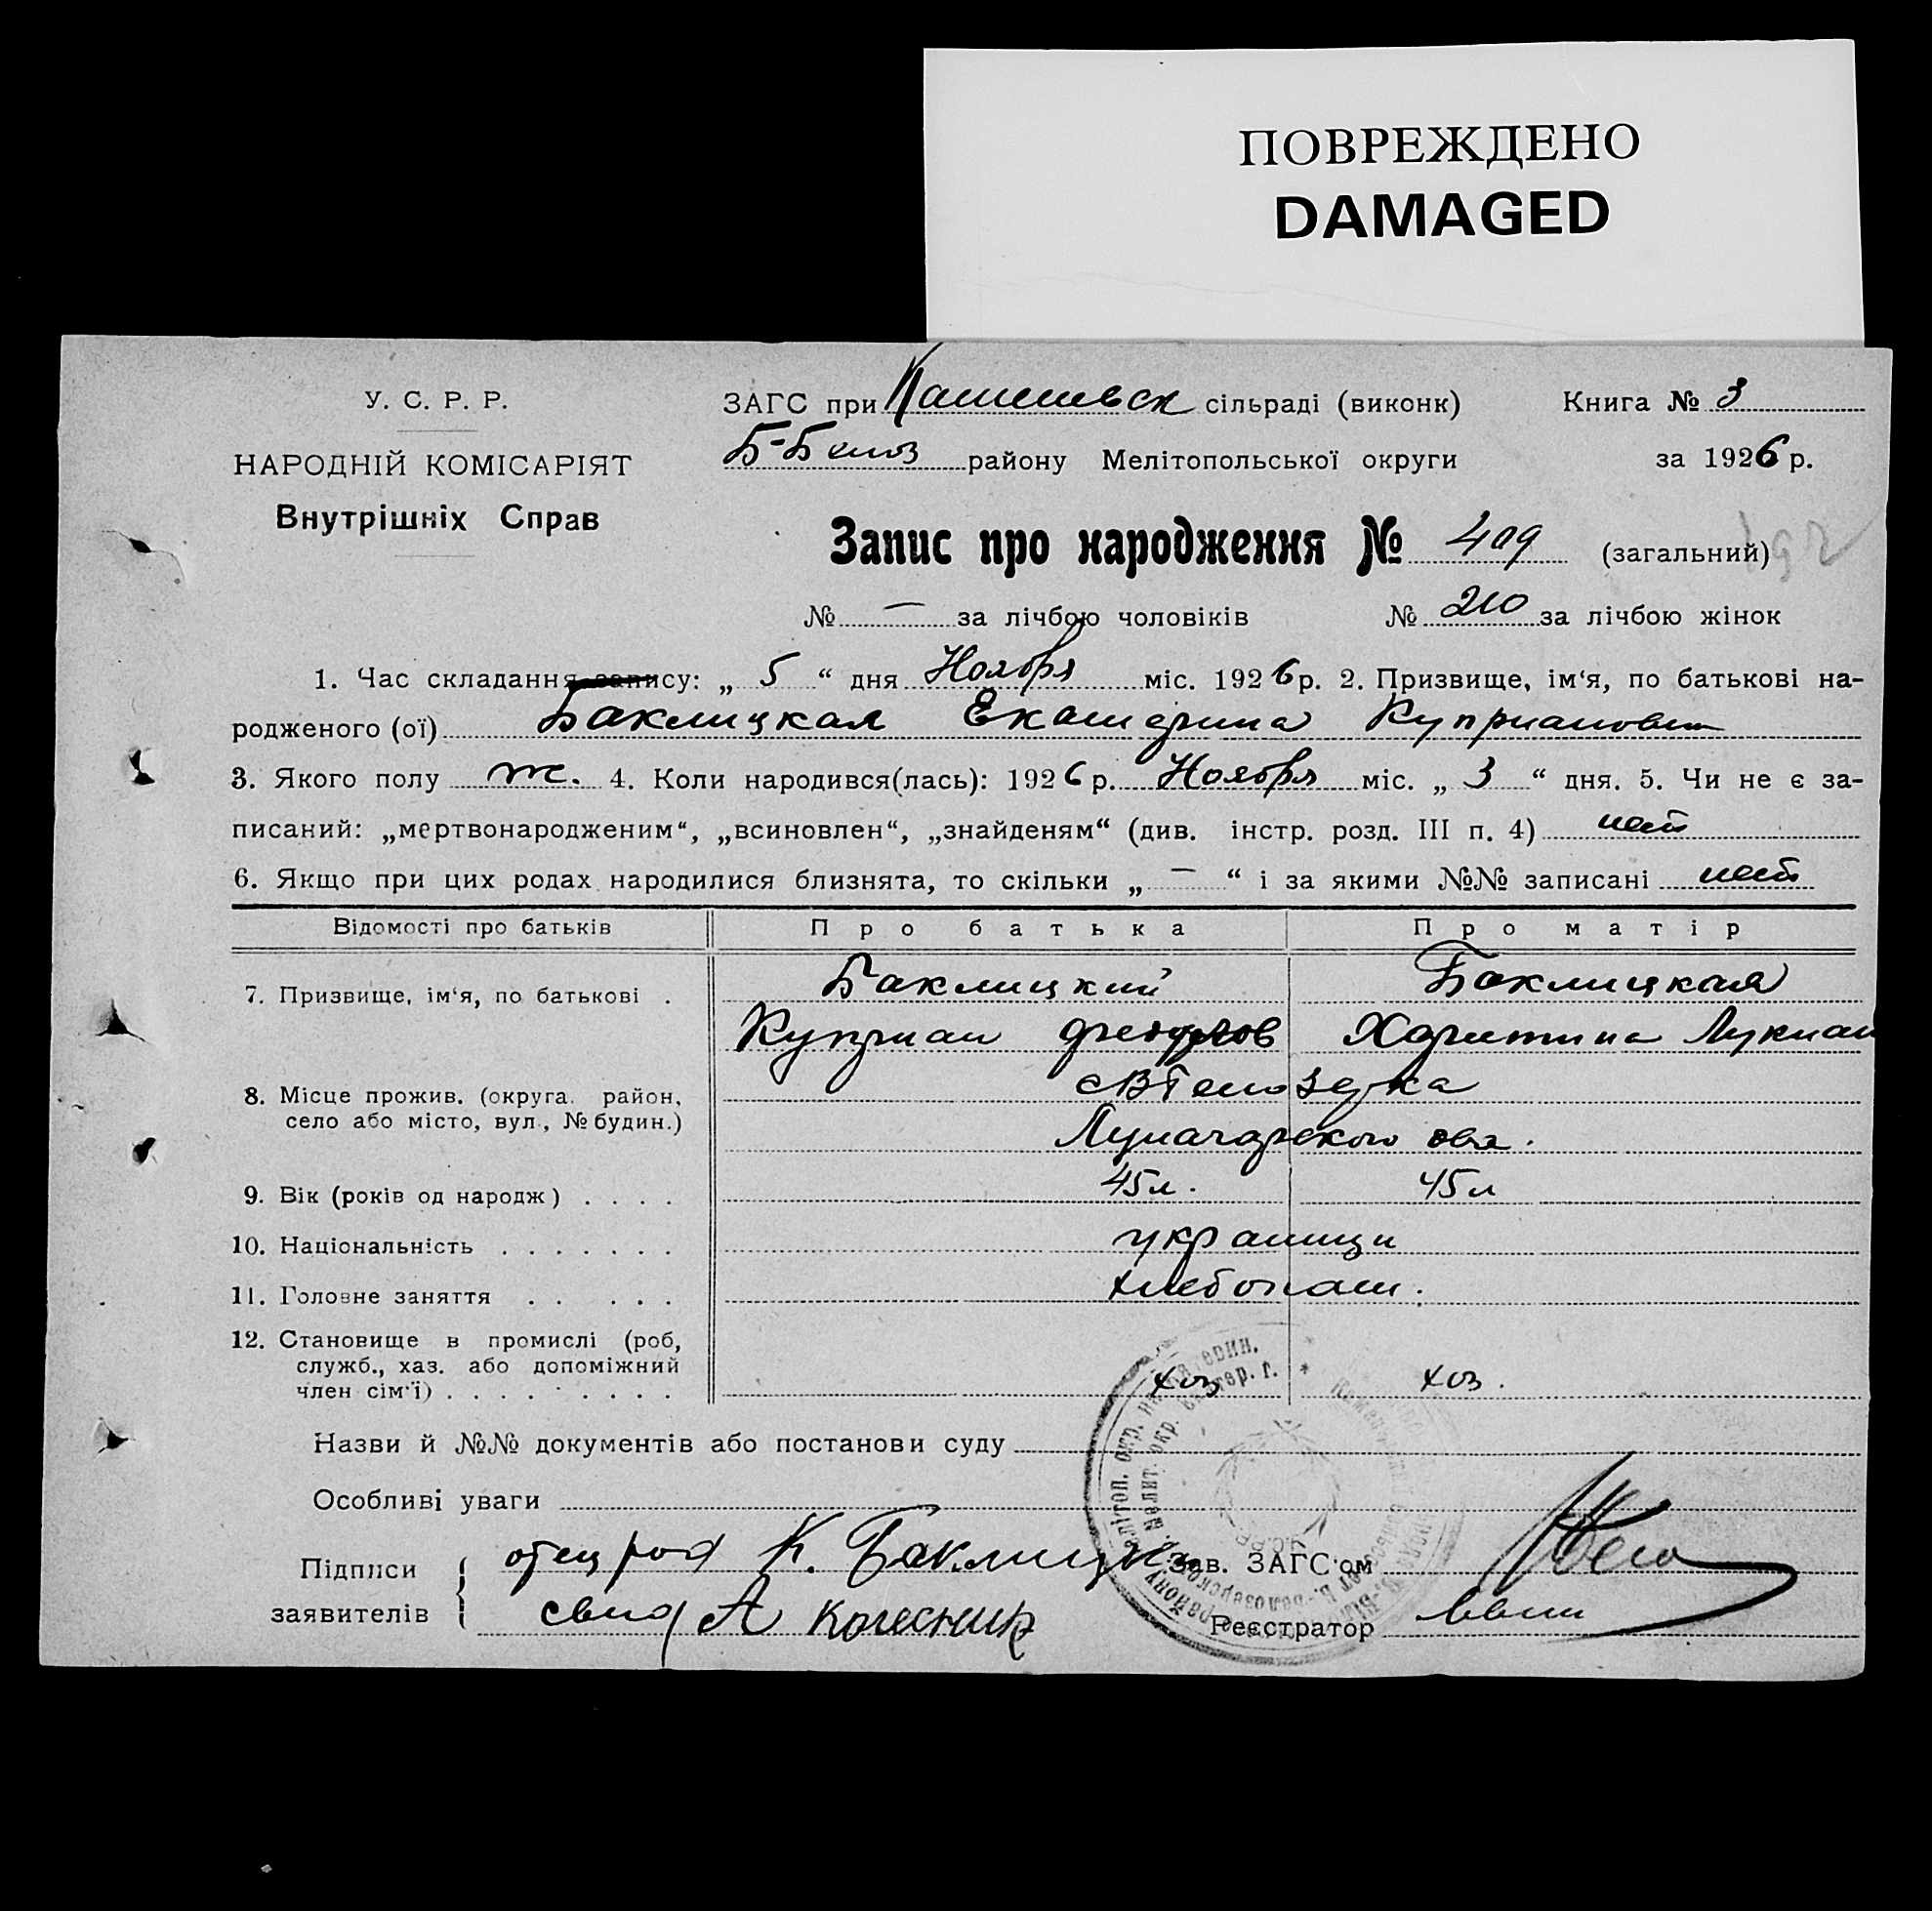 ПОВРЕЖДЕНО
DAMAGED
У. С. Р. Р.
НАРОДНІЙ КОМІСАРІЯТ
Внутрішніх Справ
ЗАГС при сільраді (виконк) Книга № 3
Б-Белоз району Мелітопольської округи за 1926 р.
Запис про народження № 409 (загальний)
№ — за лічбою чоловіків № 210 за лічбою жінок
1. Час складання запису: „ 5 “ дня Ноября міс. 1926 р. 2. Призвище, ім‘я, по батькові на-
родженого (ої) Баклицкая Екатерина Куприановн
3. Якого полу ж. 4. Коли народився(лась): 1926 р. Ноября міс. „ 3 “ дня. 5. Чи не є за-
писаний: „мертвонародженим“, „всиновлен“, „знайденям“ (див. інстр. розд. III п. 4) нет
6. Якщо при цих родах народилися близнята, то скільки „ — “ і за якими №№ записані нет
Відомості про батьків Про батька Про матір
7. Призвище, ім‘я, по батькові . Баклицкий Баклицкая
Куприан Федоров Харитина Лукиан
8. Місце прожив. (округа. район,
село або місто, вул., № будин.)
Луначарского
9. Вік (років од народж) . . . . 45 л. 45 л
10. Національність . . . . . . . украинци
11. Головне заняття . . . . . хлебопаш.
12. Становище в промислі (роб,
служб., хаз. або допоміжний
член сім‘ї) . . . . . . . . . хоз хоз.
Назви й №№ документів або постанови суду
Особливі уваги
Підписи
заявителів
отец род К. Баклицкий Зав. ЗАГС‘ом
свид А Колесник Реєстратор